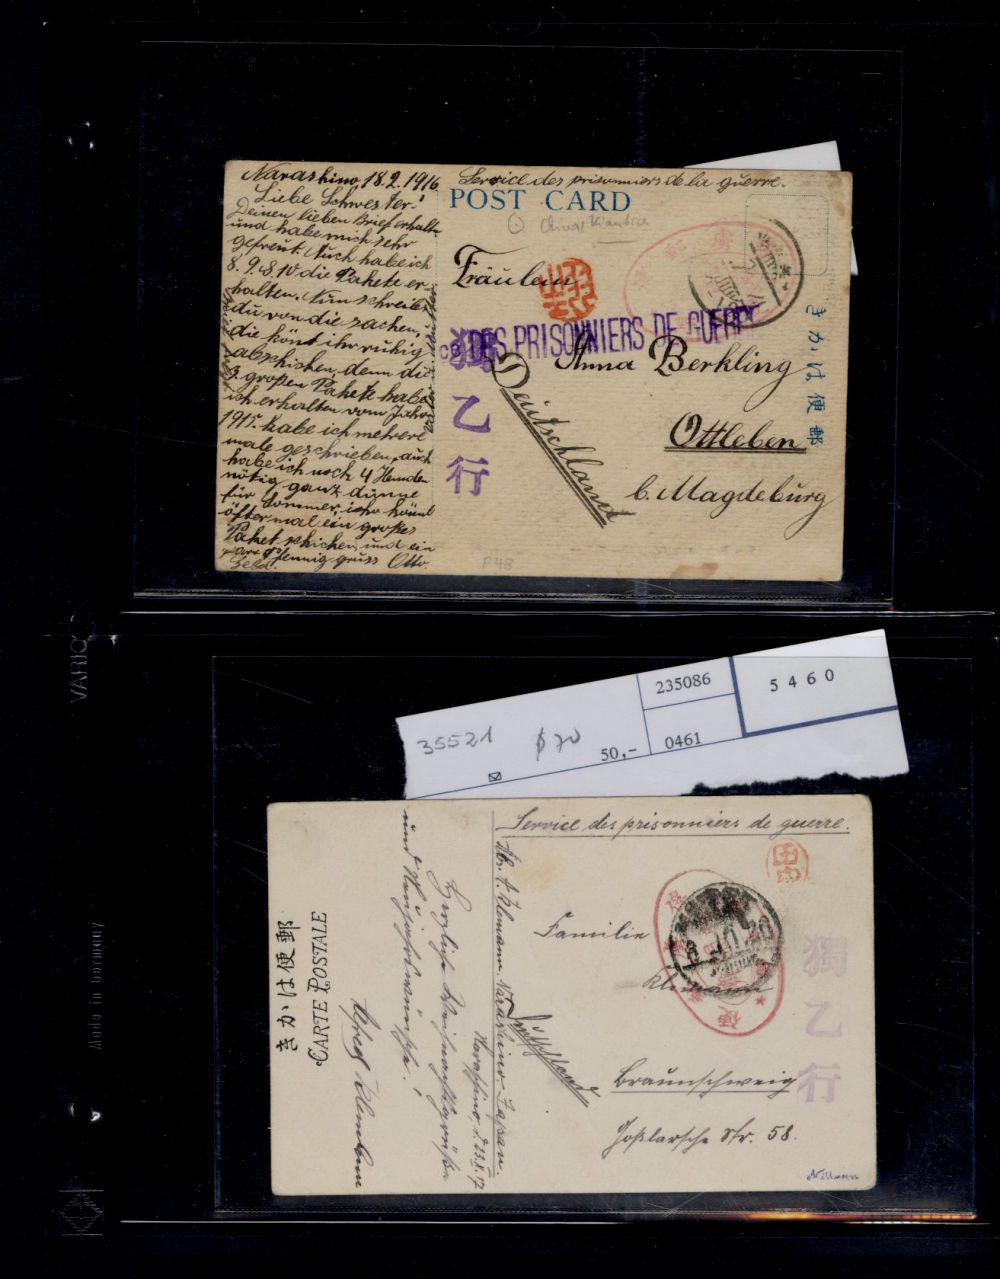 Narashino, 18.2.1916.
Liebe Schwester!
Deinen lieben Brief erhalten
und habe mich sehr
gefreut. Auch habe ich
8. 9. u. 10 die Pakete er-
halten. Nun schreibst
du von die sachen,
die könt ihr ruhig
abschicken, denn die
3 großen Pakete habe
ich erhalten vom Jahr
1915. habe ich mehrere
male geschrieben, auch
habe ich noch 4 Hemden
nötig ganz dünne
für Sommer, ihr könnt
öfter mal ein großes
Paket schicken, und ein
paar Pfennig gruss Otto.
Geld.
Service des prisonniers de la guerre.
POST CARD
China Kiautsch
Fräulein
DES PRISONNIERS DE GUERRE
Anna Berkling
Ottleben
b. Magdeburg
Deutschland
獨
乙
行
きかは便郵
P48
VARIO
Made in Germany
35521
$70
50,-
235086
0461
5460
Service des prisonniers de guerre.
Familie
Klemann
Deutschland
Braunschweig
Goßlarsche Str. 58.
獨
乙
行
きかは便郵
CARTE POSTALE
Abs. A. Klemann. Narashino-Japan.
Narashino, d. 23.X.17
Herzliche Weihnachtsgrüße
und Neujahrswünsche!
Alfred Klemann